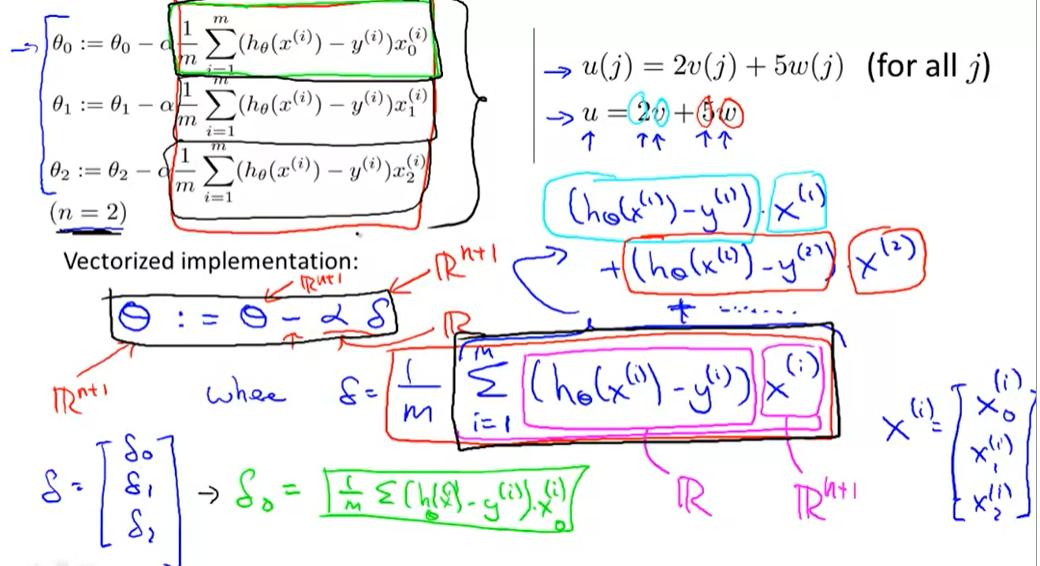 θ₀ := θ₀ − α 1/m ∑_{i=1}^{m} (h_θ(x^{(i)}) − y^{(i)}) x₀^{(i)}
θ₁ := θ₁ − α 1/m ∑_{i=1}^{m} (h_θ(x^{(i)}) − y^{(i)}) x₁^{(i)}
θ₂ := θ₂ − α 1/m ∑_{i=1}^{m} (h_θ(x^{(i)}) − y^{(i)}) x₂^{(i)}
(n = 2)
→ u(j) = 2v(j) + 5w(j) (for all j)
→ u = 2v + 5w
(h_θ(x^{(1)}) − y^{(1)}) · x^{(1)}
+ (h_θ(x^{(2)}) − y^{(2)}) · x^{(2)}
+ ........
Vectorized implementation:
ℝ^{n+1}
ℝ^{n+1}
θ := θ − α δ
ℝ
ℝ^{n+1}
where δ = 1/m ∑_{i=1}^{m} (h_θ(x^{(i)}) − y^{(i)}) x^{(i)}
ℝ
ℝ^{n+1}
x^{(i)} = [x₀^{(i)} x₁^{(i)} x₂^{(i)}]
δ = [δ₀ δ₁ δ₂] → δ₀ = 1/m ∑ (h_θ(x^{(i)}) − y^{(i)}) · x₀^{(i)}